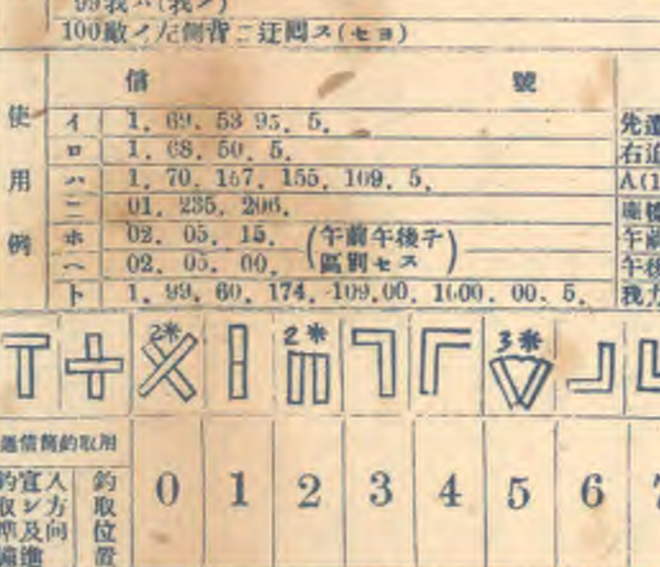 99我ハ(我ノ)
100敵ノ左側背ニ迂囘ス(セヨ)
信 號
使用例
イ 1. 69. 53 95. 5. 先
ロ 1. 68. 50. 5. 右
ハ 1. 70. 157. 155. 109. 5. A(1
ニ 01. 235. 206.
ホ 02. 05. 15. (午前午後チ 午前
ヘ 02. 05. 00. 區別セス) 午後
ト 1. 99. 60. 174. 109.00. 1600. 00. 5. 我
2米 2米 3米
通信筒釣取用
0 1 2 3 4 5 6 7
釣取位置